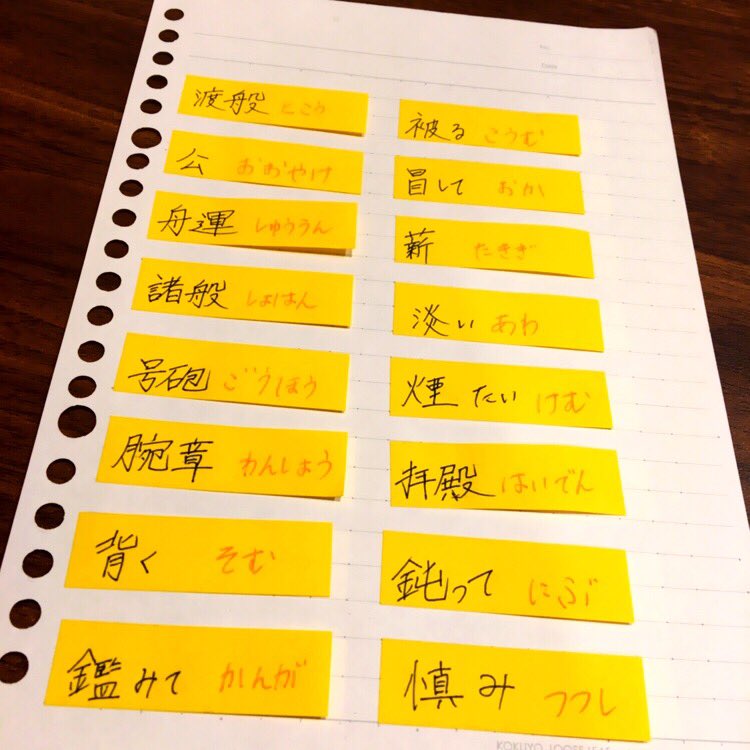 No.
Date
渡般 とこう
公 おおやけ
舟運 しゅううん
諸般 しょはん
号砲 ごうほう
腕章 わんしょう
背く そむ
鑑みて かんが
被る こうむ
冒して おか
薪 たきぎ
淡い あわ
煙たい けむ
拝殿 はいでん
鈍って にぶ
慎み つつし
KOKUYO LOOSE-LEAF